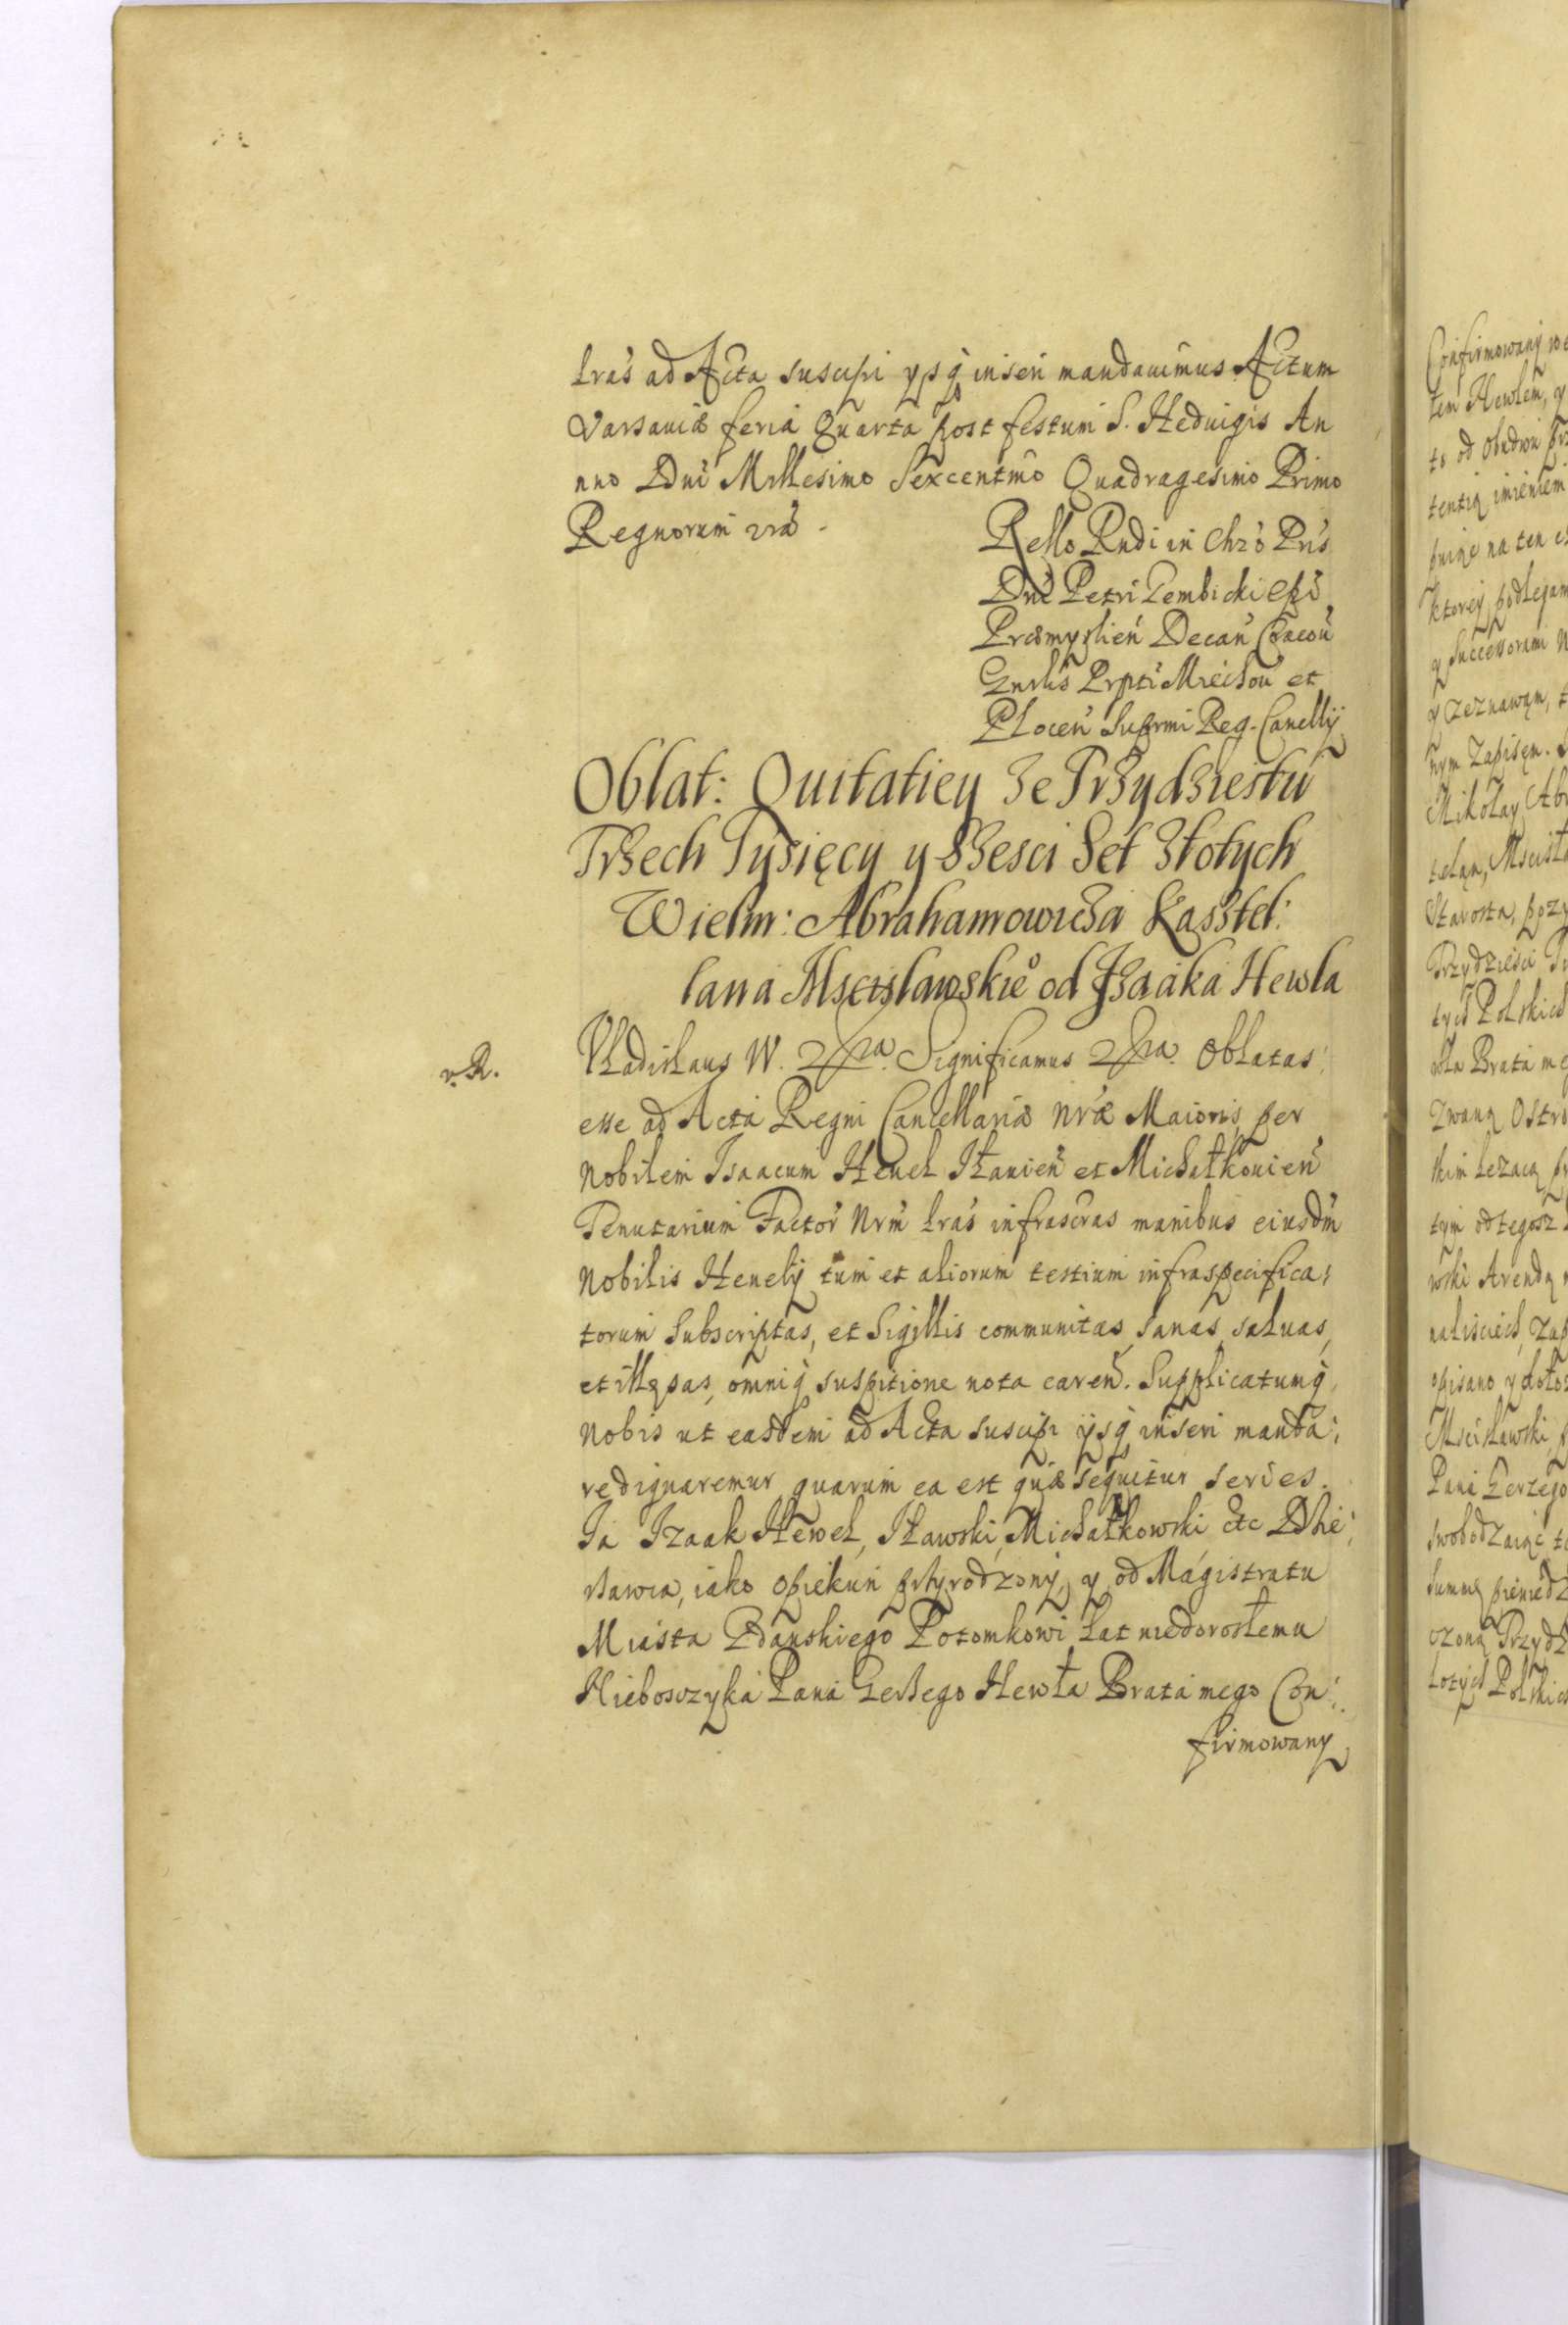 Lras ad Acta suscipi ysq inseri mandauimus Actum
Varsauiæ feria Quarta post festum S. Heduigis An
nno Dni Millesimo Sexcentmo Quadragesimo Primo
Regnorum vra
Rello Rndi in Chro Pris
Dni Petri Gembicki Epi
Præmyslien Decan Cracou
Gnrlis Prpti Miechou et
Plocen Suprmi Reg. Cancllij
Oblat: Quitatiey Ze Trzydziestu
Trzech Tysięcy y Szesci Set Złotych
Wielm: Abrahamowicza Kasztel:
lana Mscislawskie° od Jzaaka Hewla
v. R.
Vladislaus IV. Significamus Oblatas
esse ad Acta Regni Cancellariæ nræ Maioris per
Nobilem Isaacum Heuel Itauien et Michałkouien
Tenutarium Factor Nrm Lras infrascras manibus eiusdm
Nobilis Heuely tum et aliorum testium infraspecifica:
torum Subscriptas, et Sigillis communitas, sanas, saluas,
et illęsas, omniq suspitione nota caren. Supplicatumq
Nobis ut easdem ad Acta suscipi ijsq inseri manda:
re dignaremur quarum ea est quæ sequitur series.
Ja Jzaak Hewel, Iławski, Michałkowski etc Dzie:
rzawca, iako opiekun przyrodzony, y od Magistratu
Miasta Gdanskiego Potomkowi Lat niedorosłemu
Nieboszczyka Pana Gerzego Hewła Brata mego Con:
firmowany
Confirmowany
tem Hewlem, y
to od obudwu
tentią imieniem
puiąc na ten
ktorey podlegam
y Successorami
y zeznawam,
nym Zapisem.
Mikołay
telan, Mscisł
Starosta,
Trzydziesci
tych Polskich
wła Brata
zwaną Ostro
skim lezacą
tym od tegosz
wski Arendą
nalisciech,
opisano y
Mscisławski
Pana Gerzego
swobodzaiąc
summę pieniędz
czoną Trzydz
Lotych Polskich